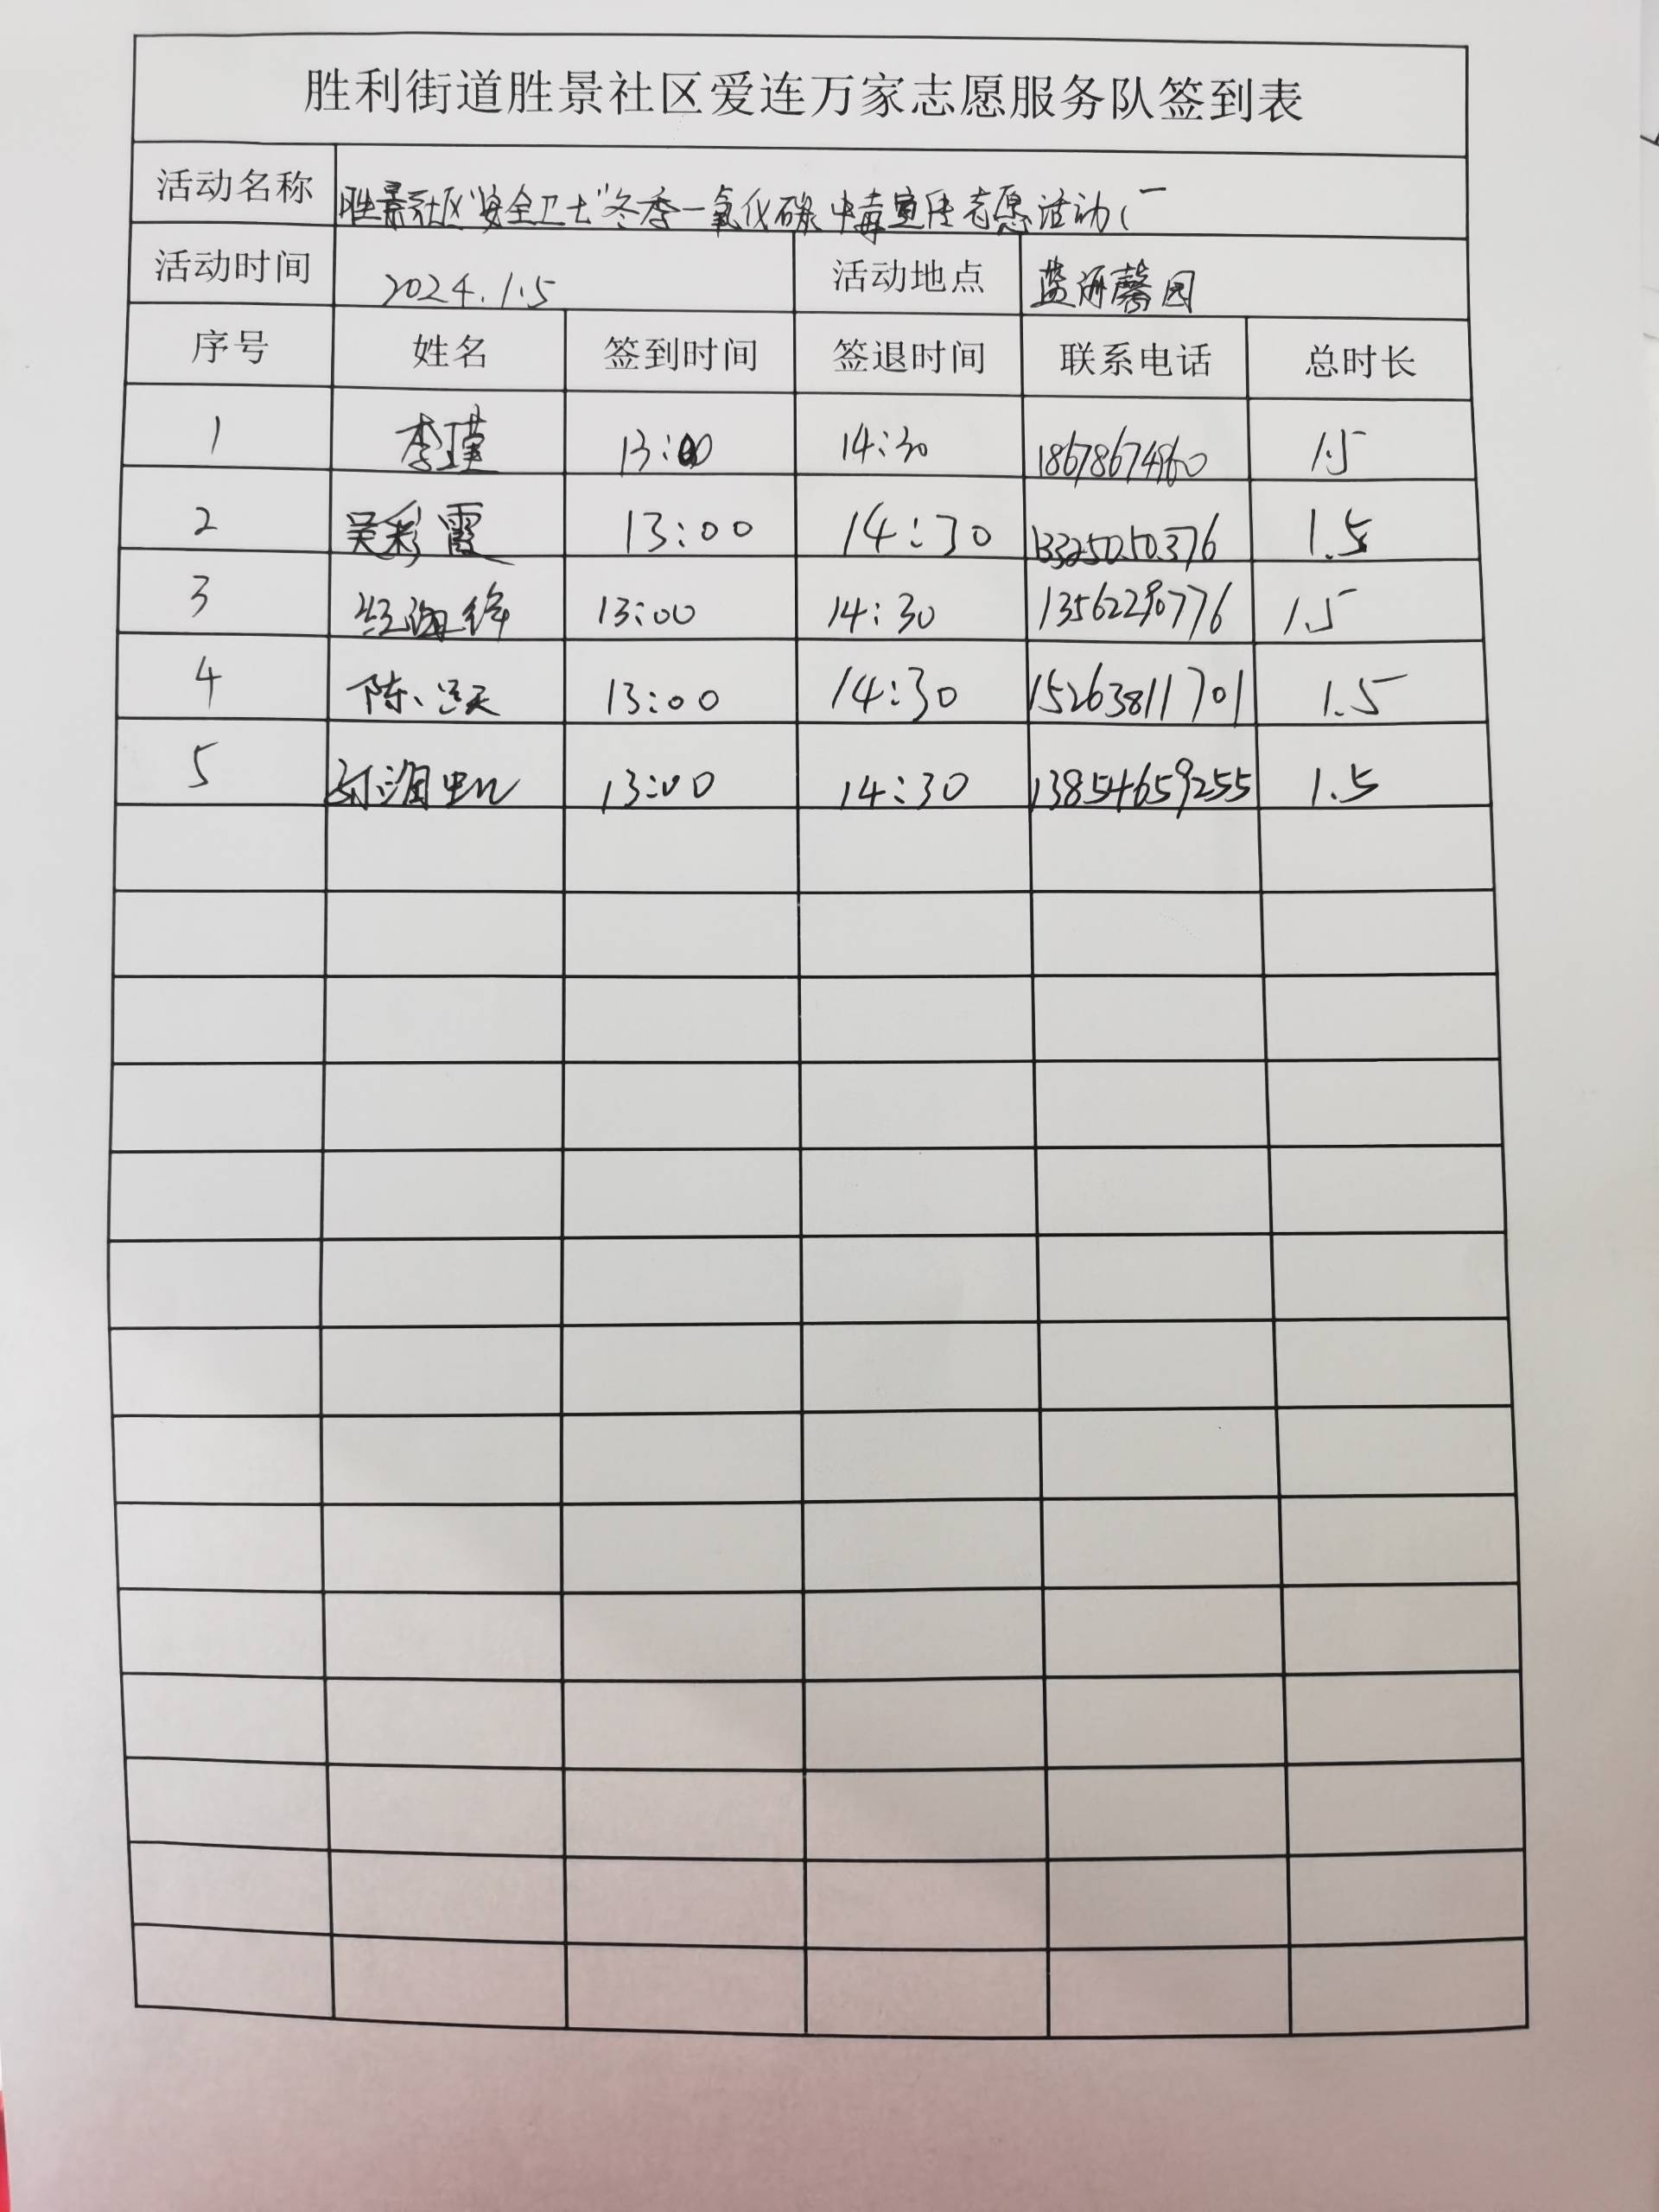 胜利街道胜景社区爱连万家志愿服务队签到表
活动名称 胜景社区"安全卫士"冬季一氧化碳中毒宣传志愿活动(一
活动时间 2024.1.5 活动地点 蓝海馨园
序号 姓名 签到时间 签退时间 联系电话 总时长
1 李瑾 13:00 14:30 18678674860 1.5
2 吴彩霞 13:00 14:30 13325050376 1.5
3 13:00 14:30 1.5
4 陈 13:00 14:30 15263811701 1.5
5 13:00 14:30 13854659255 1.5